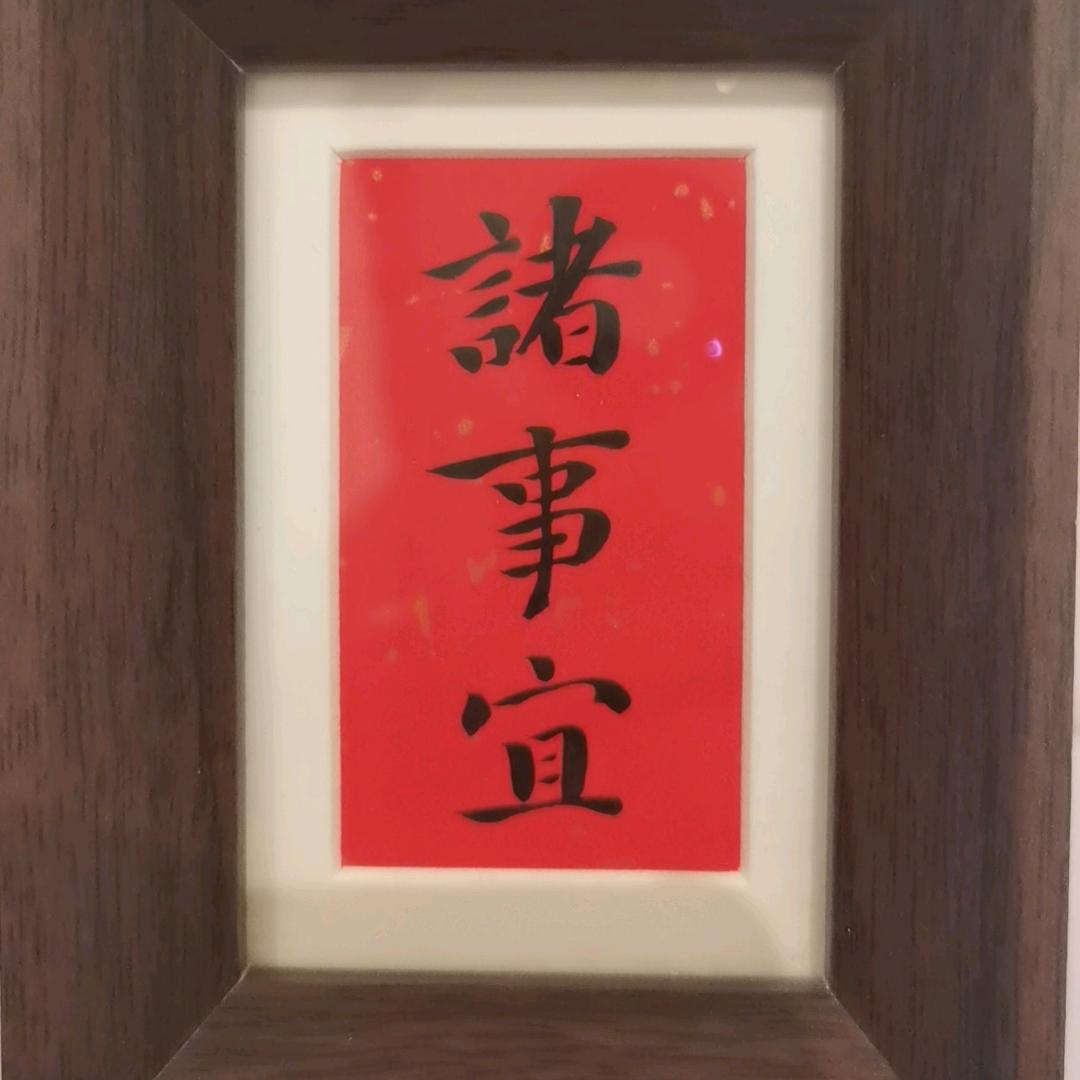 諸事宜